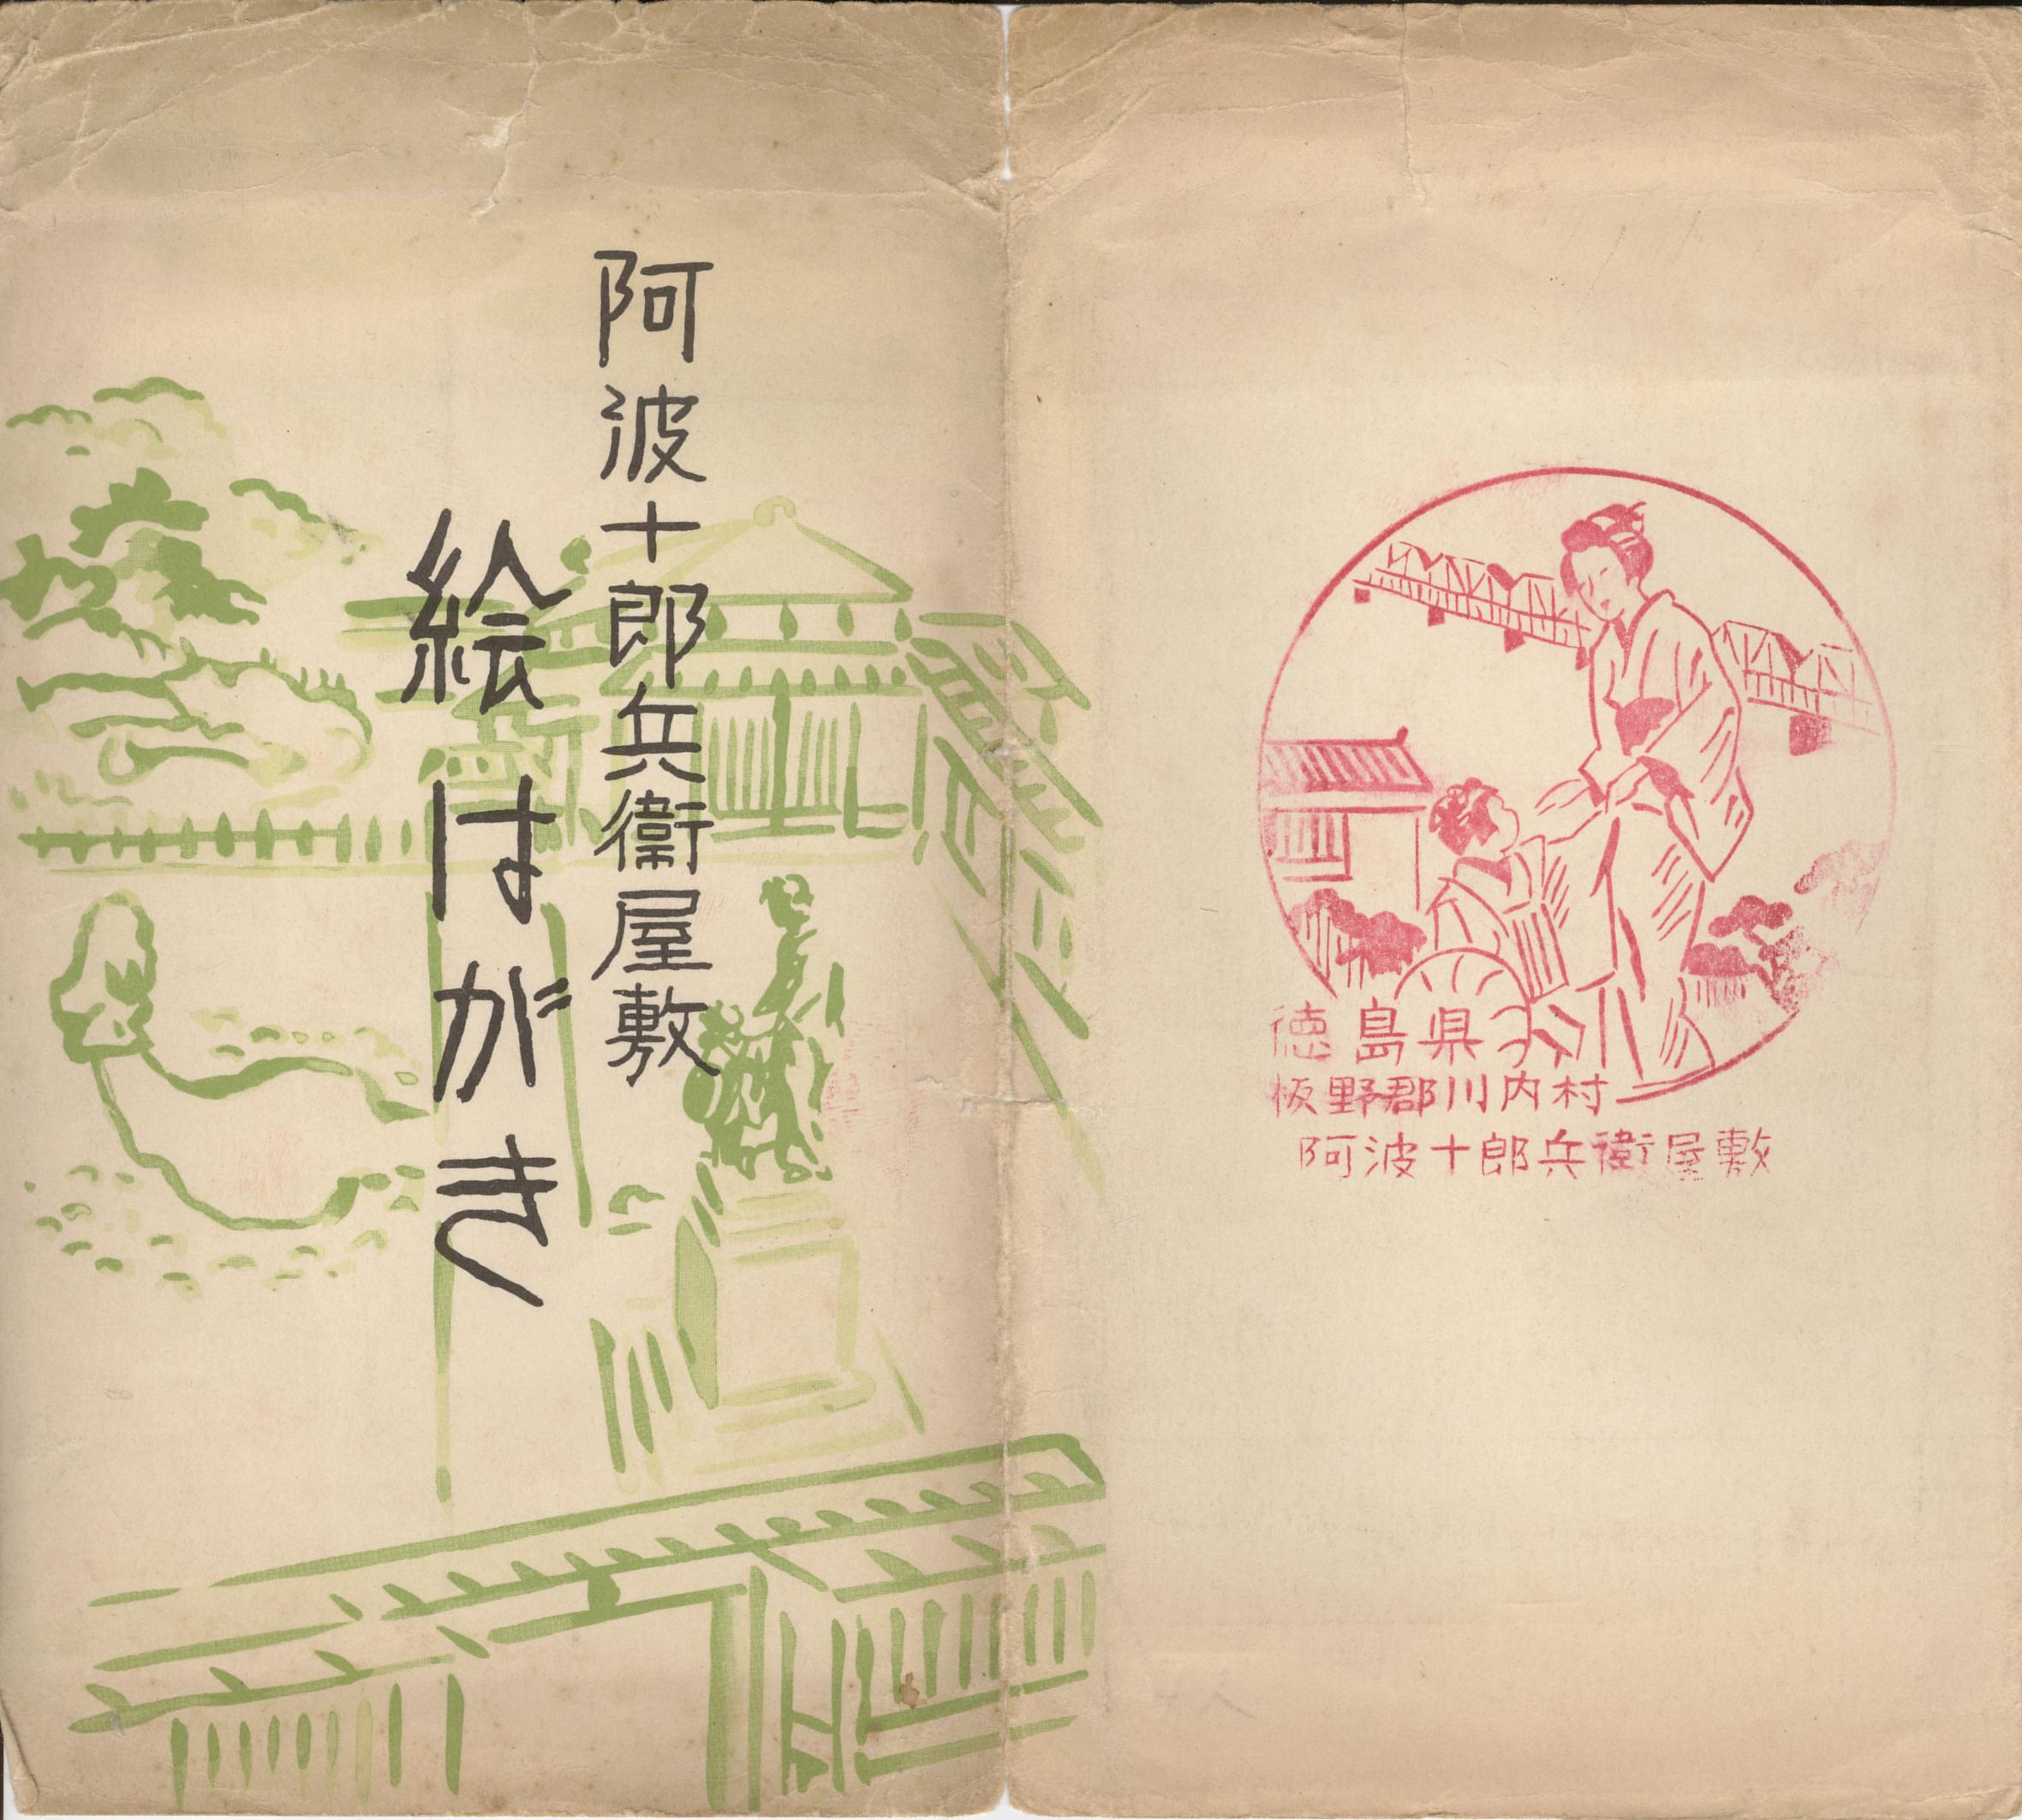 阿波十郎兵衛屋敷
絵はがき
徳島県
板野郡川内村
阿波十郎兵衛屋敷